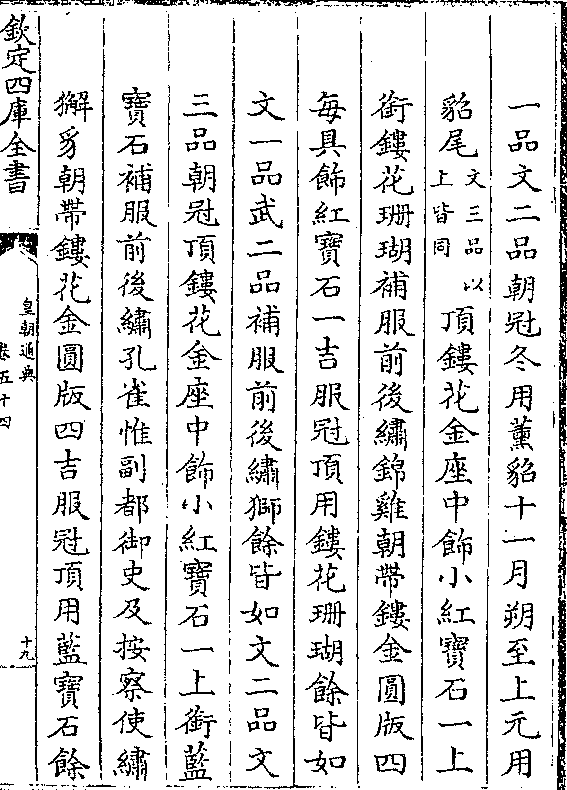 一品文二品朝冠冬用薰貂十一月朔至上元用
貂尾文三品以上皆同頂鏤花金座中飾小紅寶石一上
銜鏤花珊瑚補服前後繡錦雞朝帶鏤金圓版四
每具飾紅寶石一吉服冠頂用鏤花珊瑚餘皆如
文一品武二品補服前後繡獅餘皆如文二品文
三品朝冠頂鏤花金座中飾小紅寶石一上銜藍
寶石補服前後繡孔雀惟副都御史及按察使繡
獬豸朝帶鏤花金圓版四吉服冠頂用藍寶石餘
欽定四庫全書
皇朝通典
卷五十四
十九